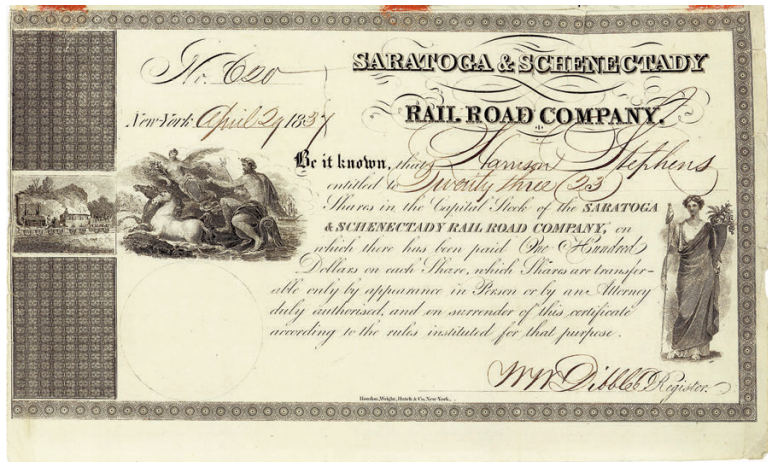 No. 620
SARATOGA & SCHENECTADY
RAIL ROAD COMPANY.
New-York April 29 1837
Be it known, that Harrison Stephens
entitled to Twenty three (23
Shares in the Capital Stock of the SARATOGA
& SCHENECTADY RAIL ROAD COMPANY, on
which there has been paid One Hundred
Dollars on each Share, which Shares are transfer-
able only by appearance in Person or by an Attorney
duly authorised, and on surrender of this certificate
according to the rules instituted for that purpose.
Dibblee Register.
Rawdon, Wright, Hatch & Co. New-York.